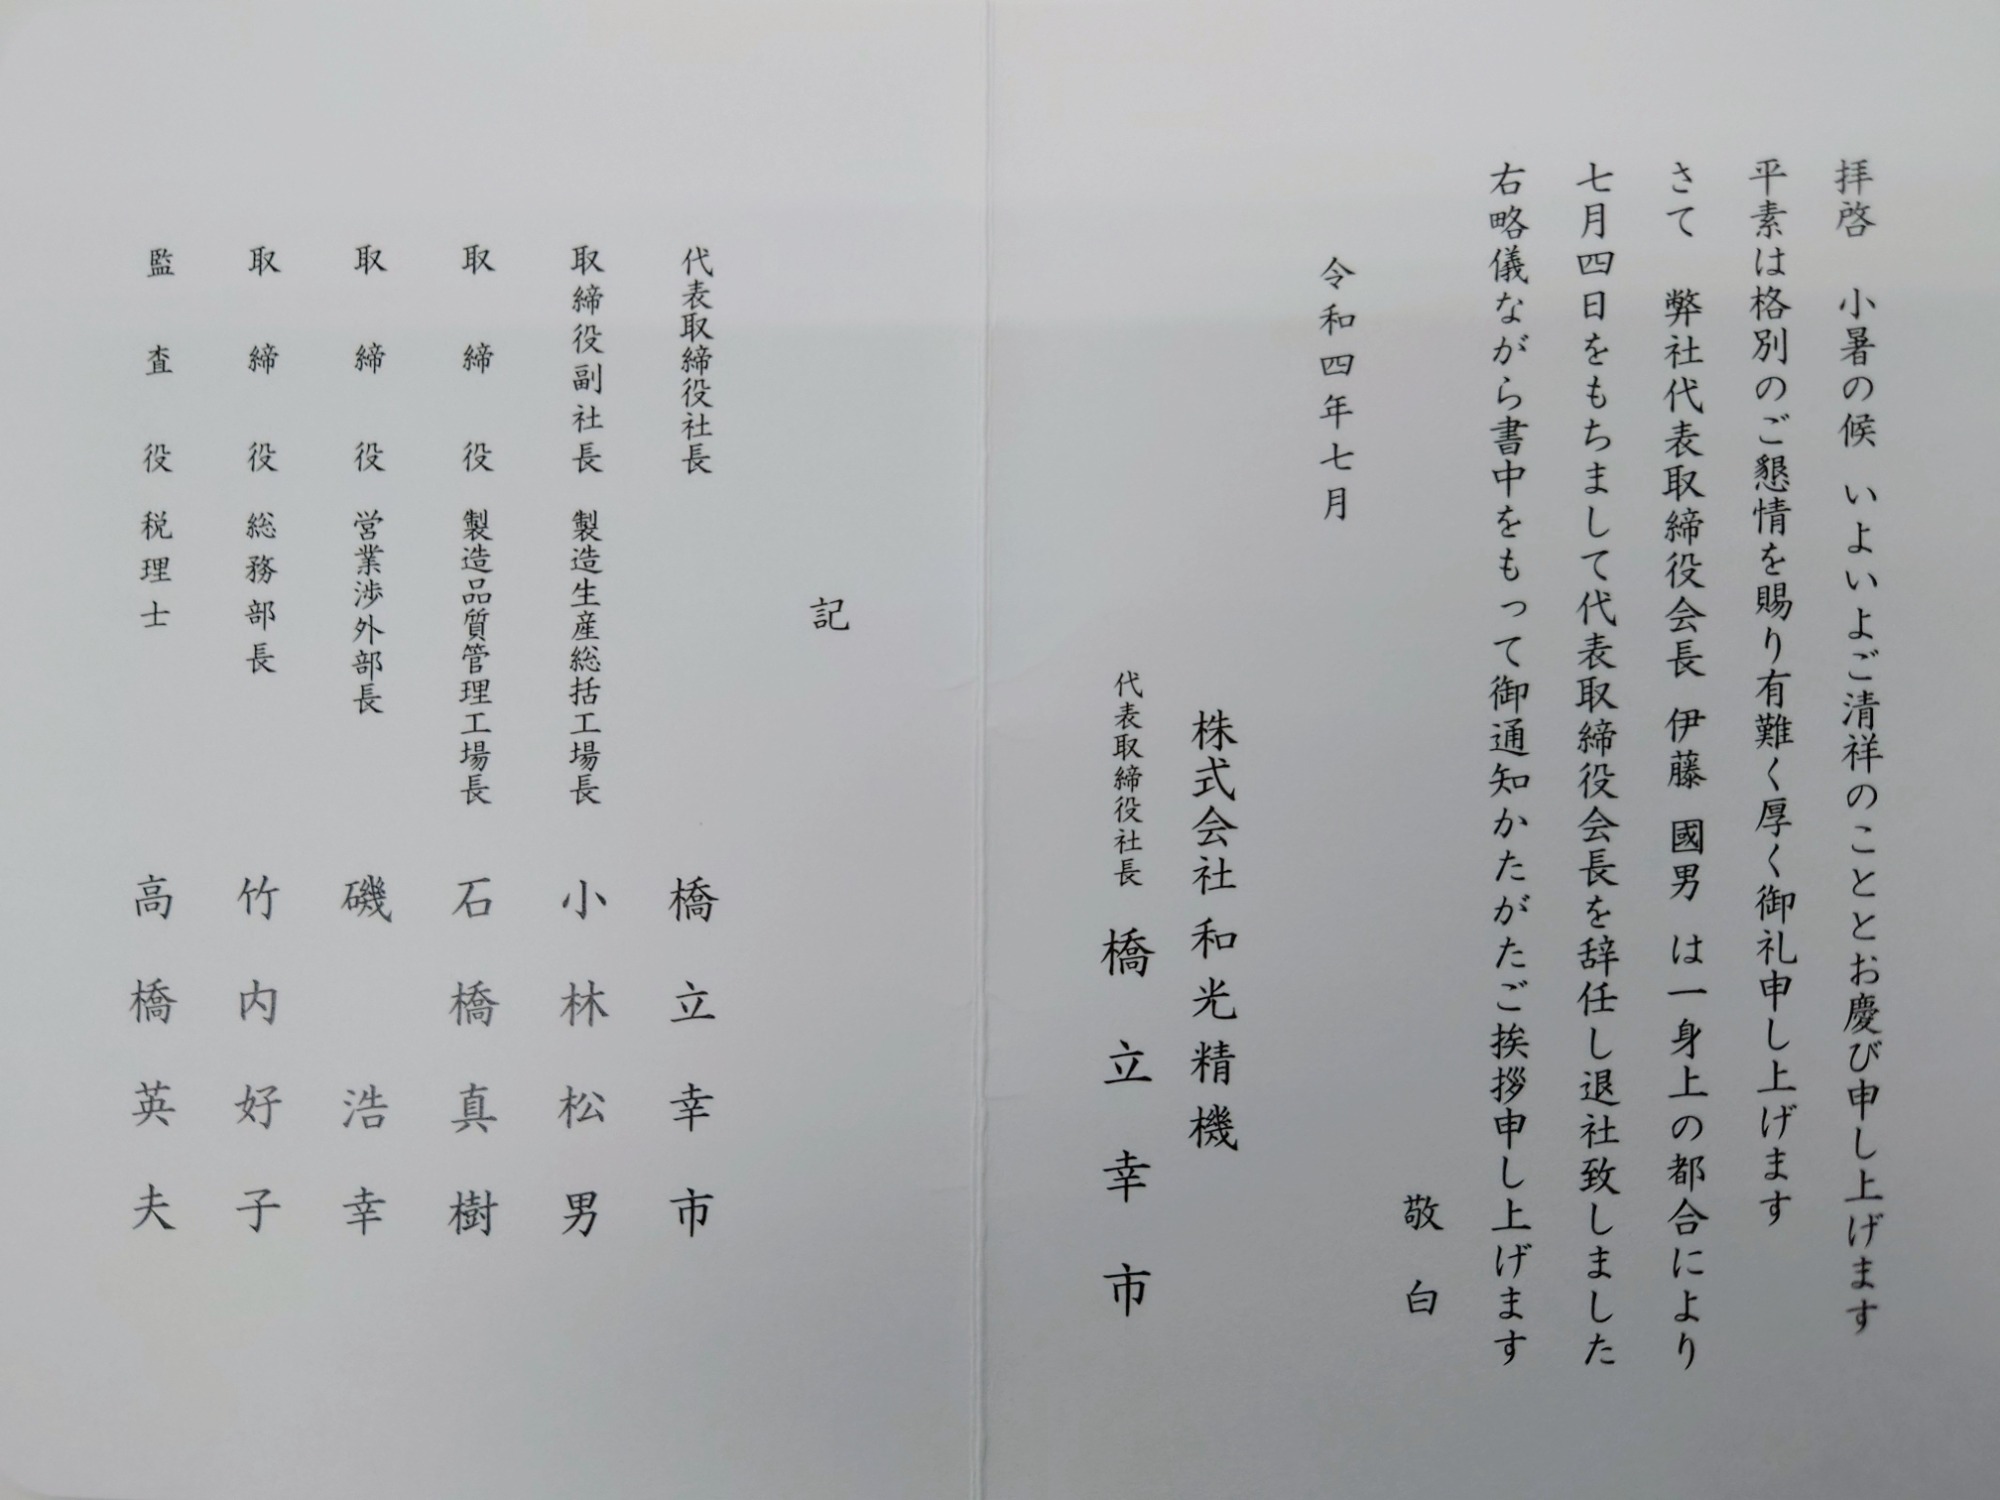 拝啓　小暑の候 いよいよご清祥のこととお慶び申し上げます
平素は格別のご懇情を賜り有難く厚く御礼申し上げます
さて　弊社代表取締役会長 伊藤 國男 は一身上の都合により
七月四日をもちまして代表取締役会長を辞任し退社致しました
右略儀ながら書中をもって御通知かたがたご挨拶申し上げます
敬白
令和四年七月
株式会社 和光精機
代表取締役社長 橋立幸市
記
代表取締役社長 橋立幸市
取締役副社長 製造生産総括工場長 小林松男
取締役 製造品質管理工場長 石橋真樹
取締役 営業渉外部長 磯　浩幸
取締役 総務部長 竹内好子
監査役 税理士 高橋英夫